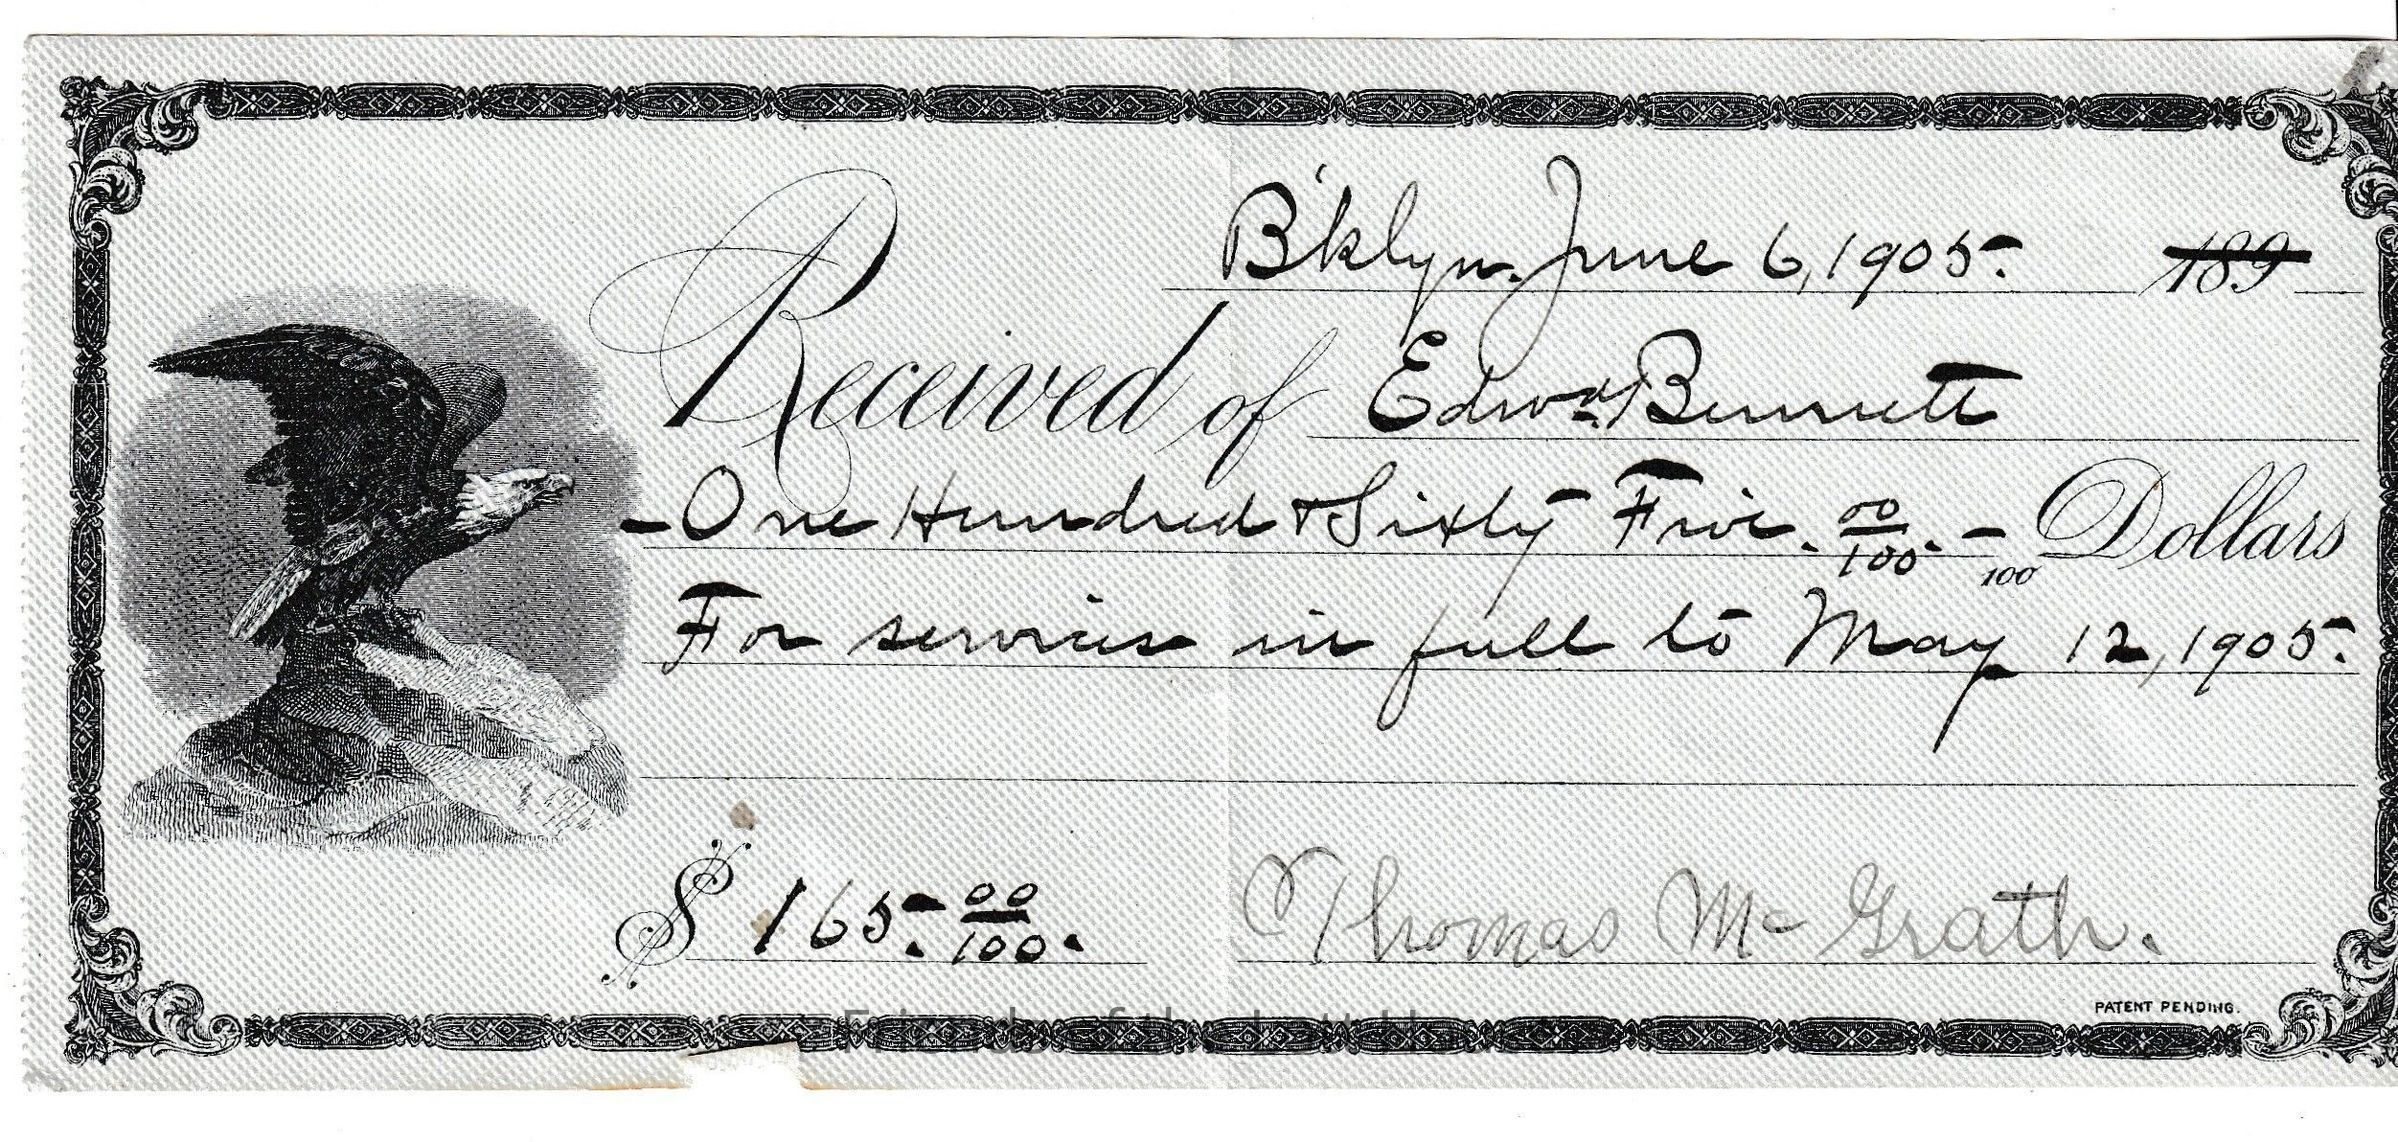 B'klyn. June 6, 1905. 189
Received of Edwd. Bennett
- One Hundred & Sixty Five. 00/100. - 100 Dollars
For services in full to May 12, 1905.
$ 165. 00/100.
Thomas Mc Grath.
PATENT PENDING.
Friends of the Lott House